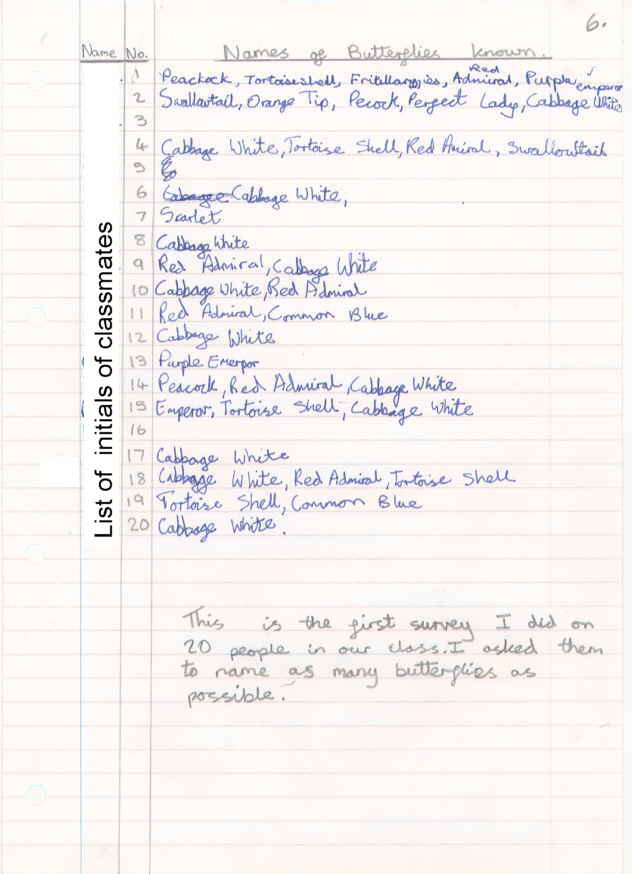 6.
Name No. Names of Butterflies known.
1 Peackock, Tortoiseshell, Fritillarygies, Red Admiral, Purple emperor
2 Swallowtail, Orange Tip, Pecock, Perfect Lady, Cabbage White
3
4 Cabbage White, Tortoise Shell, Red Amiral, Swallowstail
5
6 Cabagge Cabbage White,
7 Scarlet
8 Cabbage White
9 Red Admiral, Cabbage White
10 Cabbage White, Red Admiral
11 Red Admiral, Common Blue
12 Cabbage White
13 Purple Emerpor
14 Peacock, Red Admiral, Cabbage White
15 Emperor, Tortoise Shell, Cabbage White
16
17 Cabbage White
18 Cabbage White, Red Admiral, Tortoise Shell
19 Tortoise Shell, Common Blue
20 Cabbage White.
List of initials of classmates
This is the first survey I did on
20 people in our class. I asked them
to name as many butterflies as
possible.